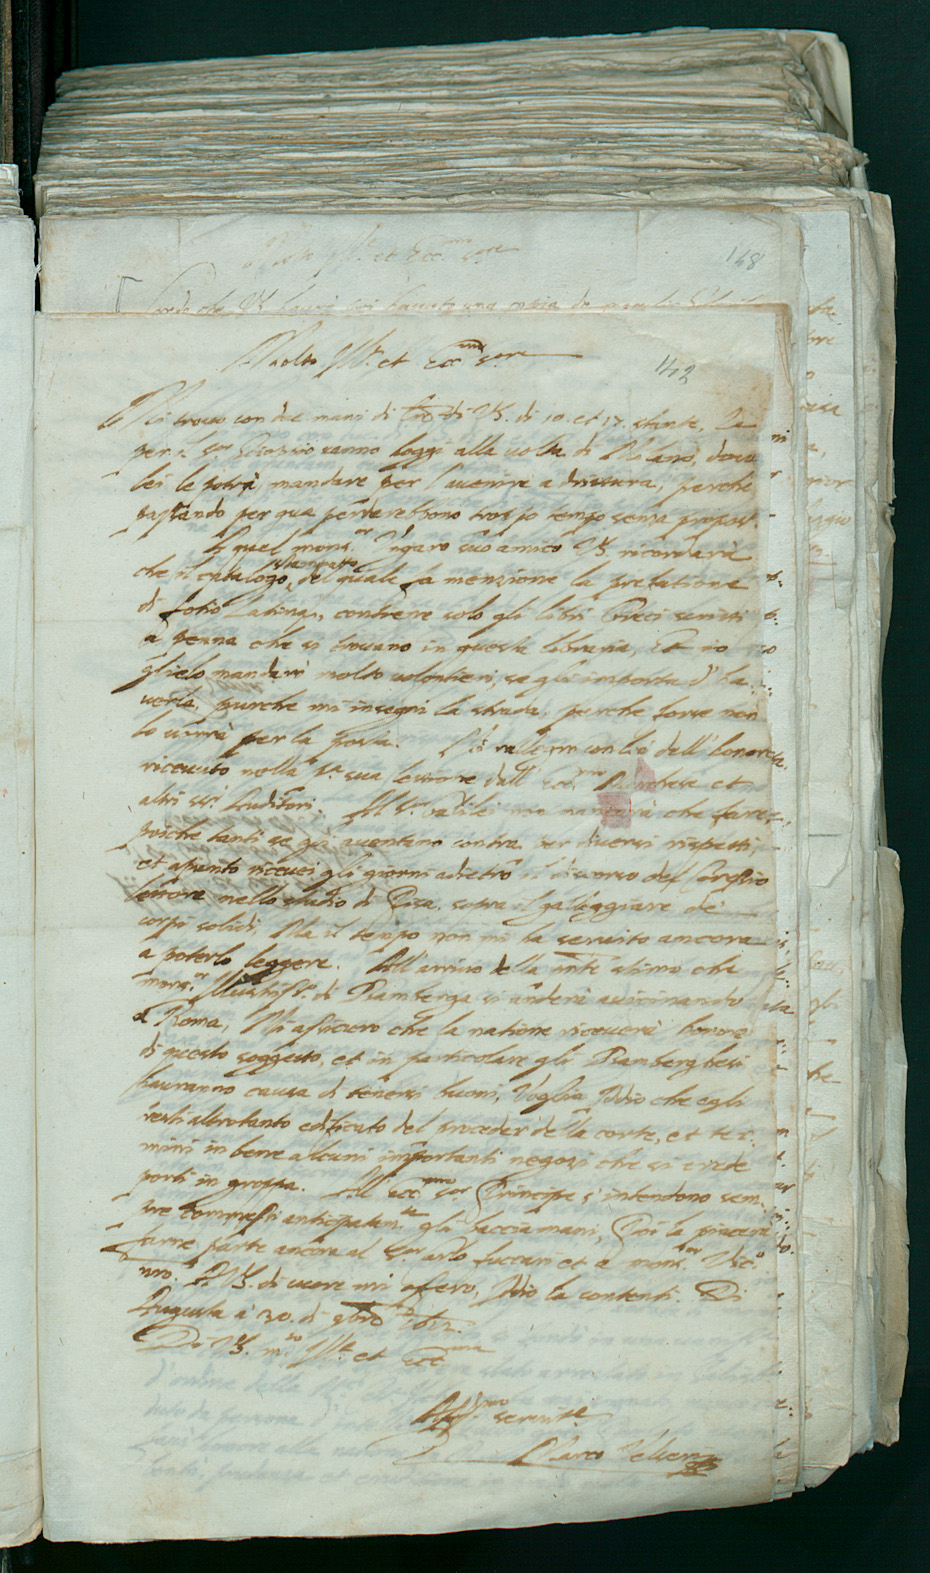 Molto Ill.re et Ecc.mo s.ore
148
142
Mi trovo con due mani di di VS. di 10. et 17. stante, la
per il s.or vanno hoggi alla volta di Milano, dove
lei le potrà mandare per l'avenire a drittura, perche
passando per qua perderebbono troppo tempo senza propos.
A quel mons.or Ungaro suo amico VS. ricorderà
che il catalogo stampato, del quale fa menzione la prefatione
di fotio latino, contiene solo gli libri Greci scritti
a penna che si trovano in questa libraria, Et io
glielo mandarò molto volontieri, se gli importa d'ha
verlo, purche mi insegni la strada, perche forse non
lo vorrà per la posta. Mi rallegro con lei dell'honore
ricevuto nella p.a sua lezzione dall' ecc.mo Marchese et
altri ss.ri Auditori. Al s.or Galilei non mancarà che fare,
poiche tanti se gli aventano contra per diversi rispetti,
et apunto ricevei gli giorni adietro il discorso del Coresio
lettore nello studio di Pisa, sopra il galleggiare de'
corpi solidi, Ma il tempo non mi ha servito ancora
a poterlo leggere. All'arrivo della stimo che
mons.or Illustriss.o di Bamberga si anderà avicinando
a Roma, Mi assicuro che la natione riceverà honore
di questo soggetto, et in particolare gli Bamberghesi
hauranno causa di tenersi buoni, Voglia Iddio che egli
resti altrotanto edificato del proceder della corte, et ter-
mini in bene alcuni importanti negozi che si crede
porti in groppa. All' ecc.mo s.or Principe s'intendono sem-
pre compresi anticipatam.te gli bacciamani, Poi la piacerà
farne parte ancora al s.or et a mons.or
nro. A VS. di cuore mi offero, Iddio la contenti. Di
Augusta à 30. di 9bro 1612.
Di VS. m.to Ill.re et ecc.ma
Aff.mo servit.e
Marco Velsero